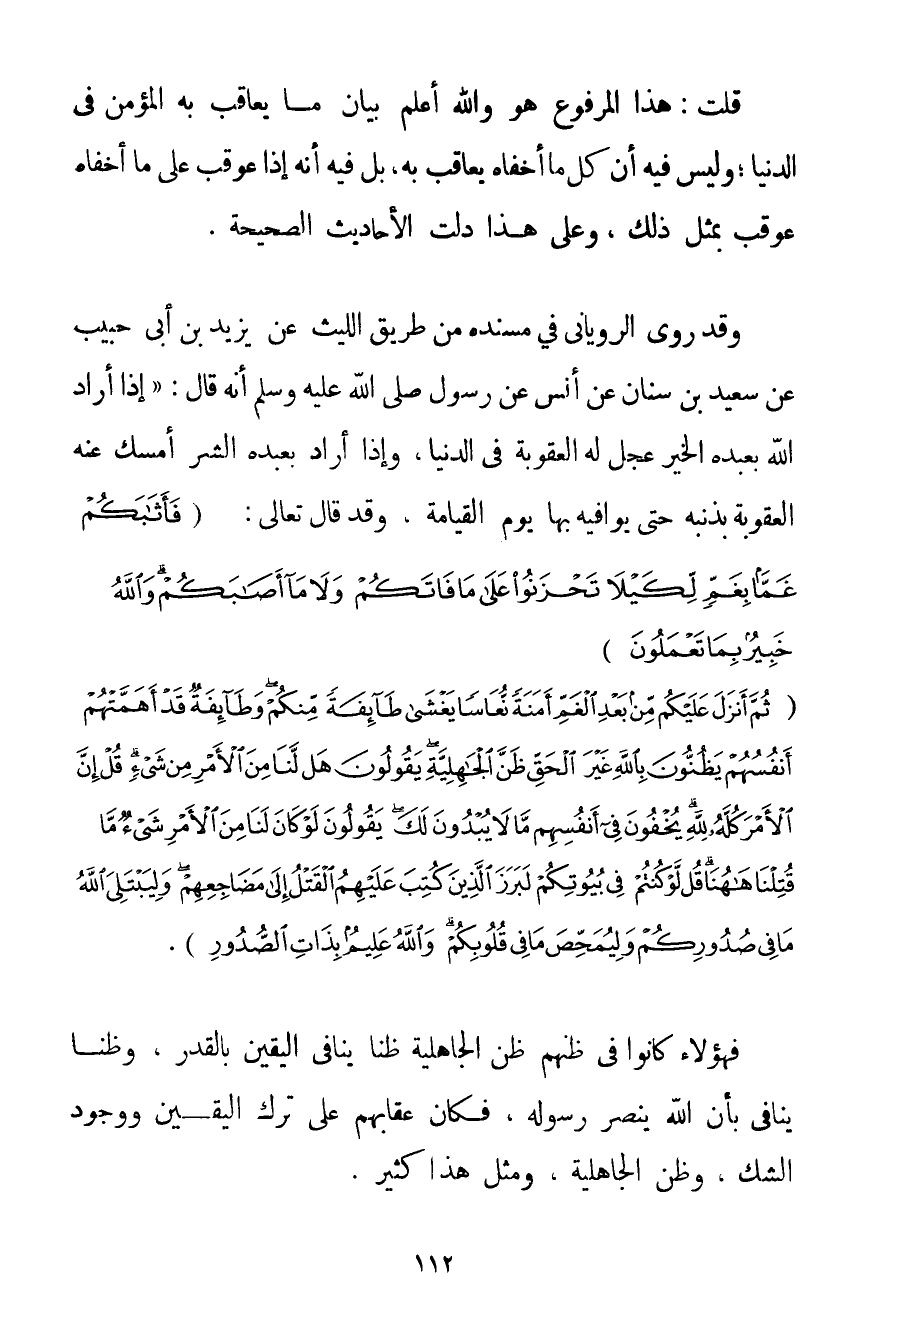 قلت : هذا المرفوع هو والله أعلم بيان مــا يعاقب به المؤمن فى
الدنيا ؛ وليس فيه أن كل ما أخفاه يعاقب به، بل فيه أنه إذا عوقب على ما أخفاه
عوقب بمثل ذلك ، وعلى هــذا دلت الأحاديث الصحيحة .
وقد روى الرويانى في مسنده من طريق الليث عن يزيد بن أبى حبيب
عن سعيد بن سنان عن أنس عن رسول صلى الله عليه وسلم أنه قال : « إذا أراد
الله بعبده الخير عجل له العقوبة فى الدنيا ، وإذا أراد بعبده الشر أمسك عنه
العقوبة بذنبه حتى يوافيه بها يوم القيامة ، وقد قال تعالى : ( فَأَثَٰبَكُمْ
غَمًّۢا بِغَمٍّ لِّكَيْلَا تَحْزَنُوا۟ عَلَىٰ مَا فَاتَكُمْ وَلَا مَآ أَصَٰبَكُمْ ۗ وَٱللَّهُ
خَبِيرٌۢ بِمَا تَعْمَلُونَ )
( ثُمَّ أَنزَلَ عَلَيْكُم مِّنۢ بَعْدِ ٱلْغَمِّ أَمَنَةً نُّعَاسًا يَغْشَىٰ طَآئِفَةً مِّنكُمْ ۖ وَطَآئِفَةٌ قَدْ أَهَمَّتْهُمْ
أَنفُسُهُمْ يَظُنُّونَ بِٱللَّهِ غَيْرَ ٱلْحَقِّ ظَنَّ ٱلْجَٰهِلِيَّةِ ۖ يَقُولُونَ هَل لَّنَا مِنَ ٱلْأَمْرِ مِن شَىْءٍ ۗ قُلْ إِنَّ
ٱلْأَمْرَ كُلَّهُۥ لِلَّهِ ۗ يُخْفُونَ فِىٓ أَنفُسِهِم مَّا لَا يُبْدُونَ لَكَ ۖ يَقُولُونَ لَوْ كَانَ لَنَا مِنَ ٱلْأَمْرِ شَىْءٌ مَّا
قُتِلْنَا هَٰهُنَا ۗ قُل لَّوْ كُنتُمْ فِى بُيُوتِكُمْ لَبَرَزَ ٱلَّذِينَ كُتِبَ عَلَيْهِمُ ٱلْقَتْلُ إِلَىٰ مَضَاجِعِهِمْ ۖ وَلِيَبْتَلِىَ ٱللَّهُ
مَا فِى صُدُورِكُمْ وَلِيُمَحِّصَ مَا فِى قُلُوبِكُمْ ۗ وَٱللَّهُ عَلِيمٌۢ بِذَاتِ ٱلصُّدُورِ ) .
فهؤلاء كانوا فى ظنهم ظن الجاهلية ظنا ينافى اليقين بالقدر ، وظنــا
ينافى بأن الله ينصر رسوله ، فـكان عقابهم على ترك اليقــين ووجود
الشك ، وظن الجاهلية ، ومثل هذا كثير .
١١٢